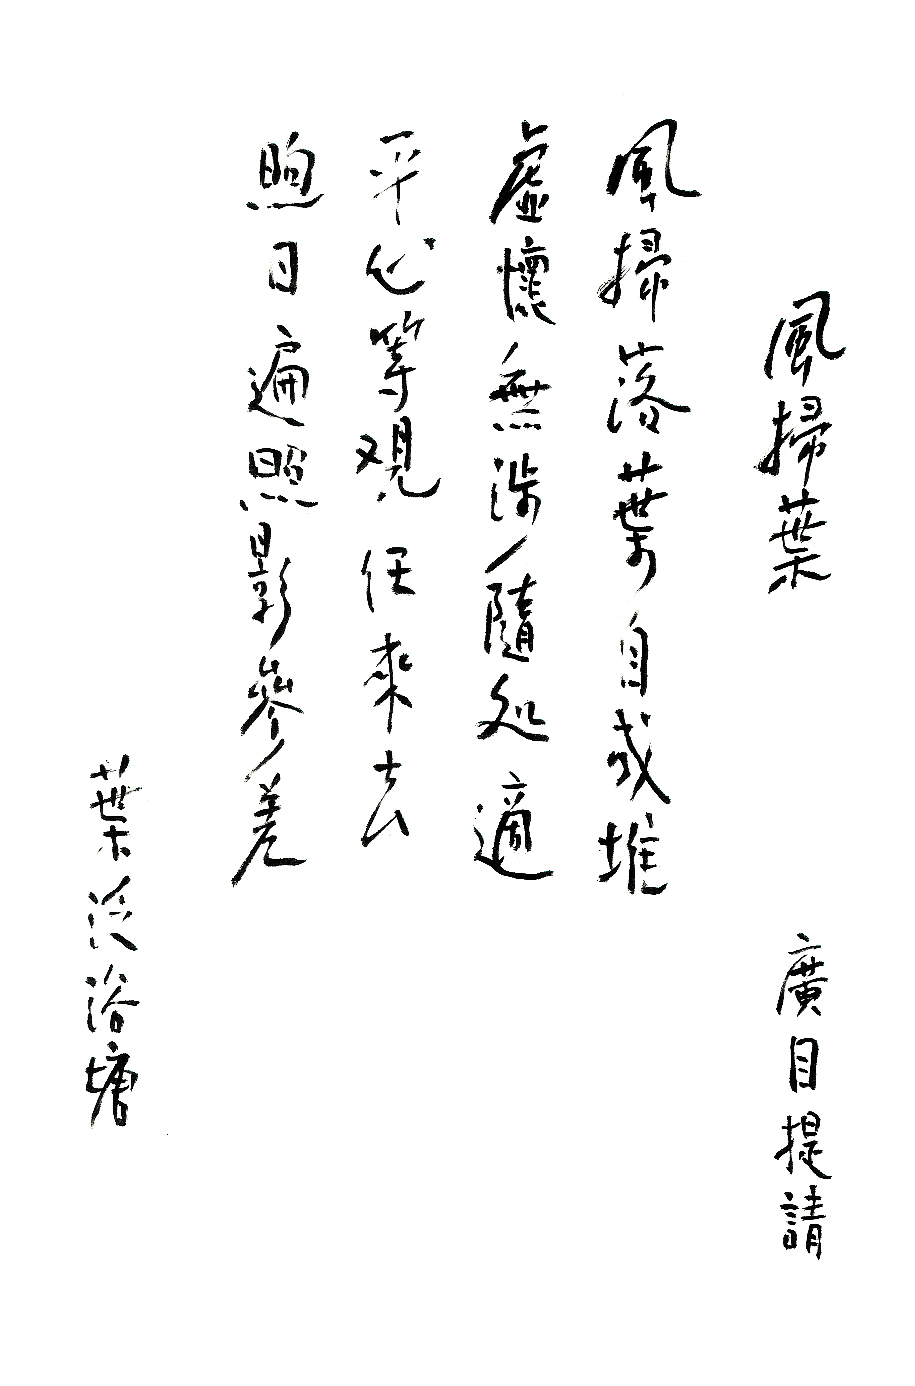 風掃葉
廣目提請
風掃落葉自成堆
虛懷無涉隨処適
平心等观任來去
煦日遍照影參差
葉泛浴塘